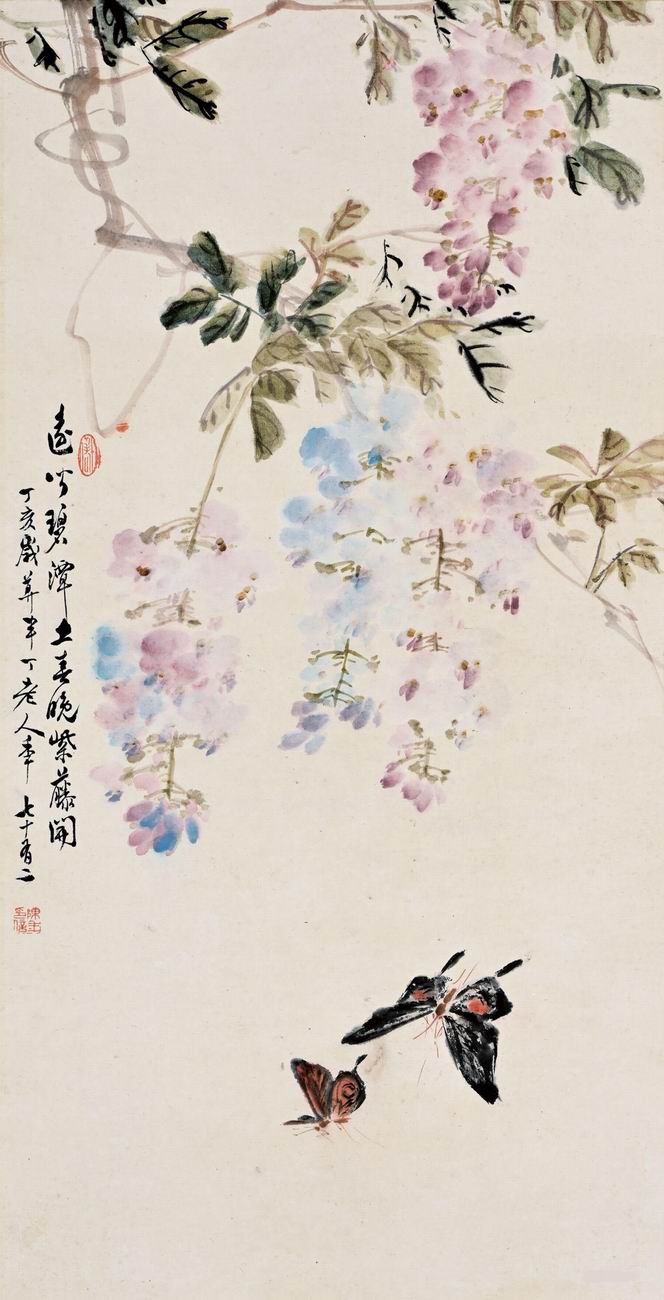 遙聞碧潭上春晚紫藤開
丁亥歲莫半丁老人年七十有二